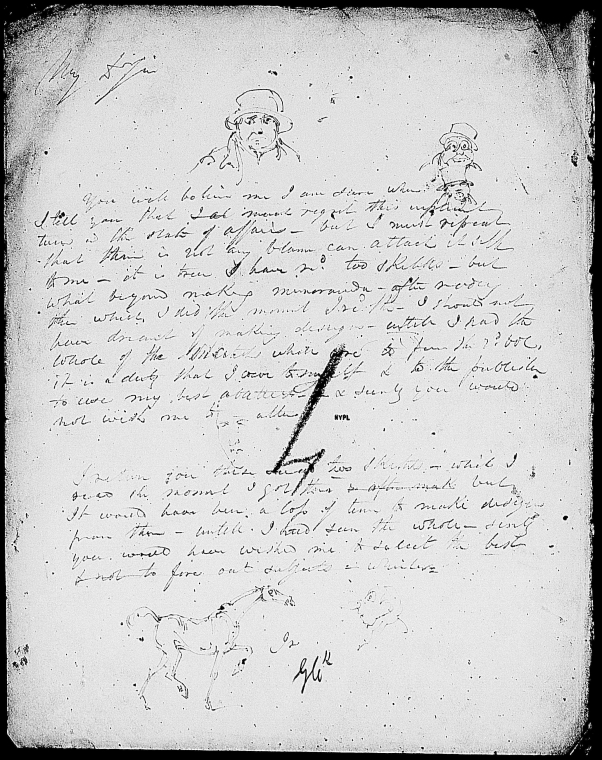 My D Sir
You will believe me I am sure when
I tell you that I much regret this unpleasant
turn in the state of affairs – but I must repeat
that there is not any blame can attach itself
to me – it is true I have rec.d two sketches – but
what beyond making memoranda – after reading
them which I did the moment I rec.d th – I should not
have dreamt of making designs – untill I had the
whole of the Sketches which are to form the 2.d vol.
it is a duty that I owe to myself & to the publisher
to use my best & surely you would
not wish me to
4
NYPL
I return you these two sketches – which I
read the moment I got them but
It would have been a loss of time to make designs
from them – untill I had seen the whole – surely
you would have wished me to select the best
& not to
Geo